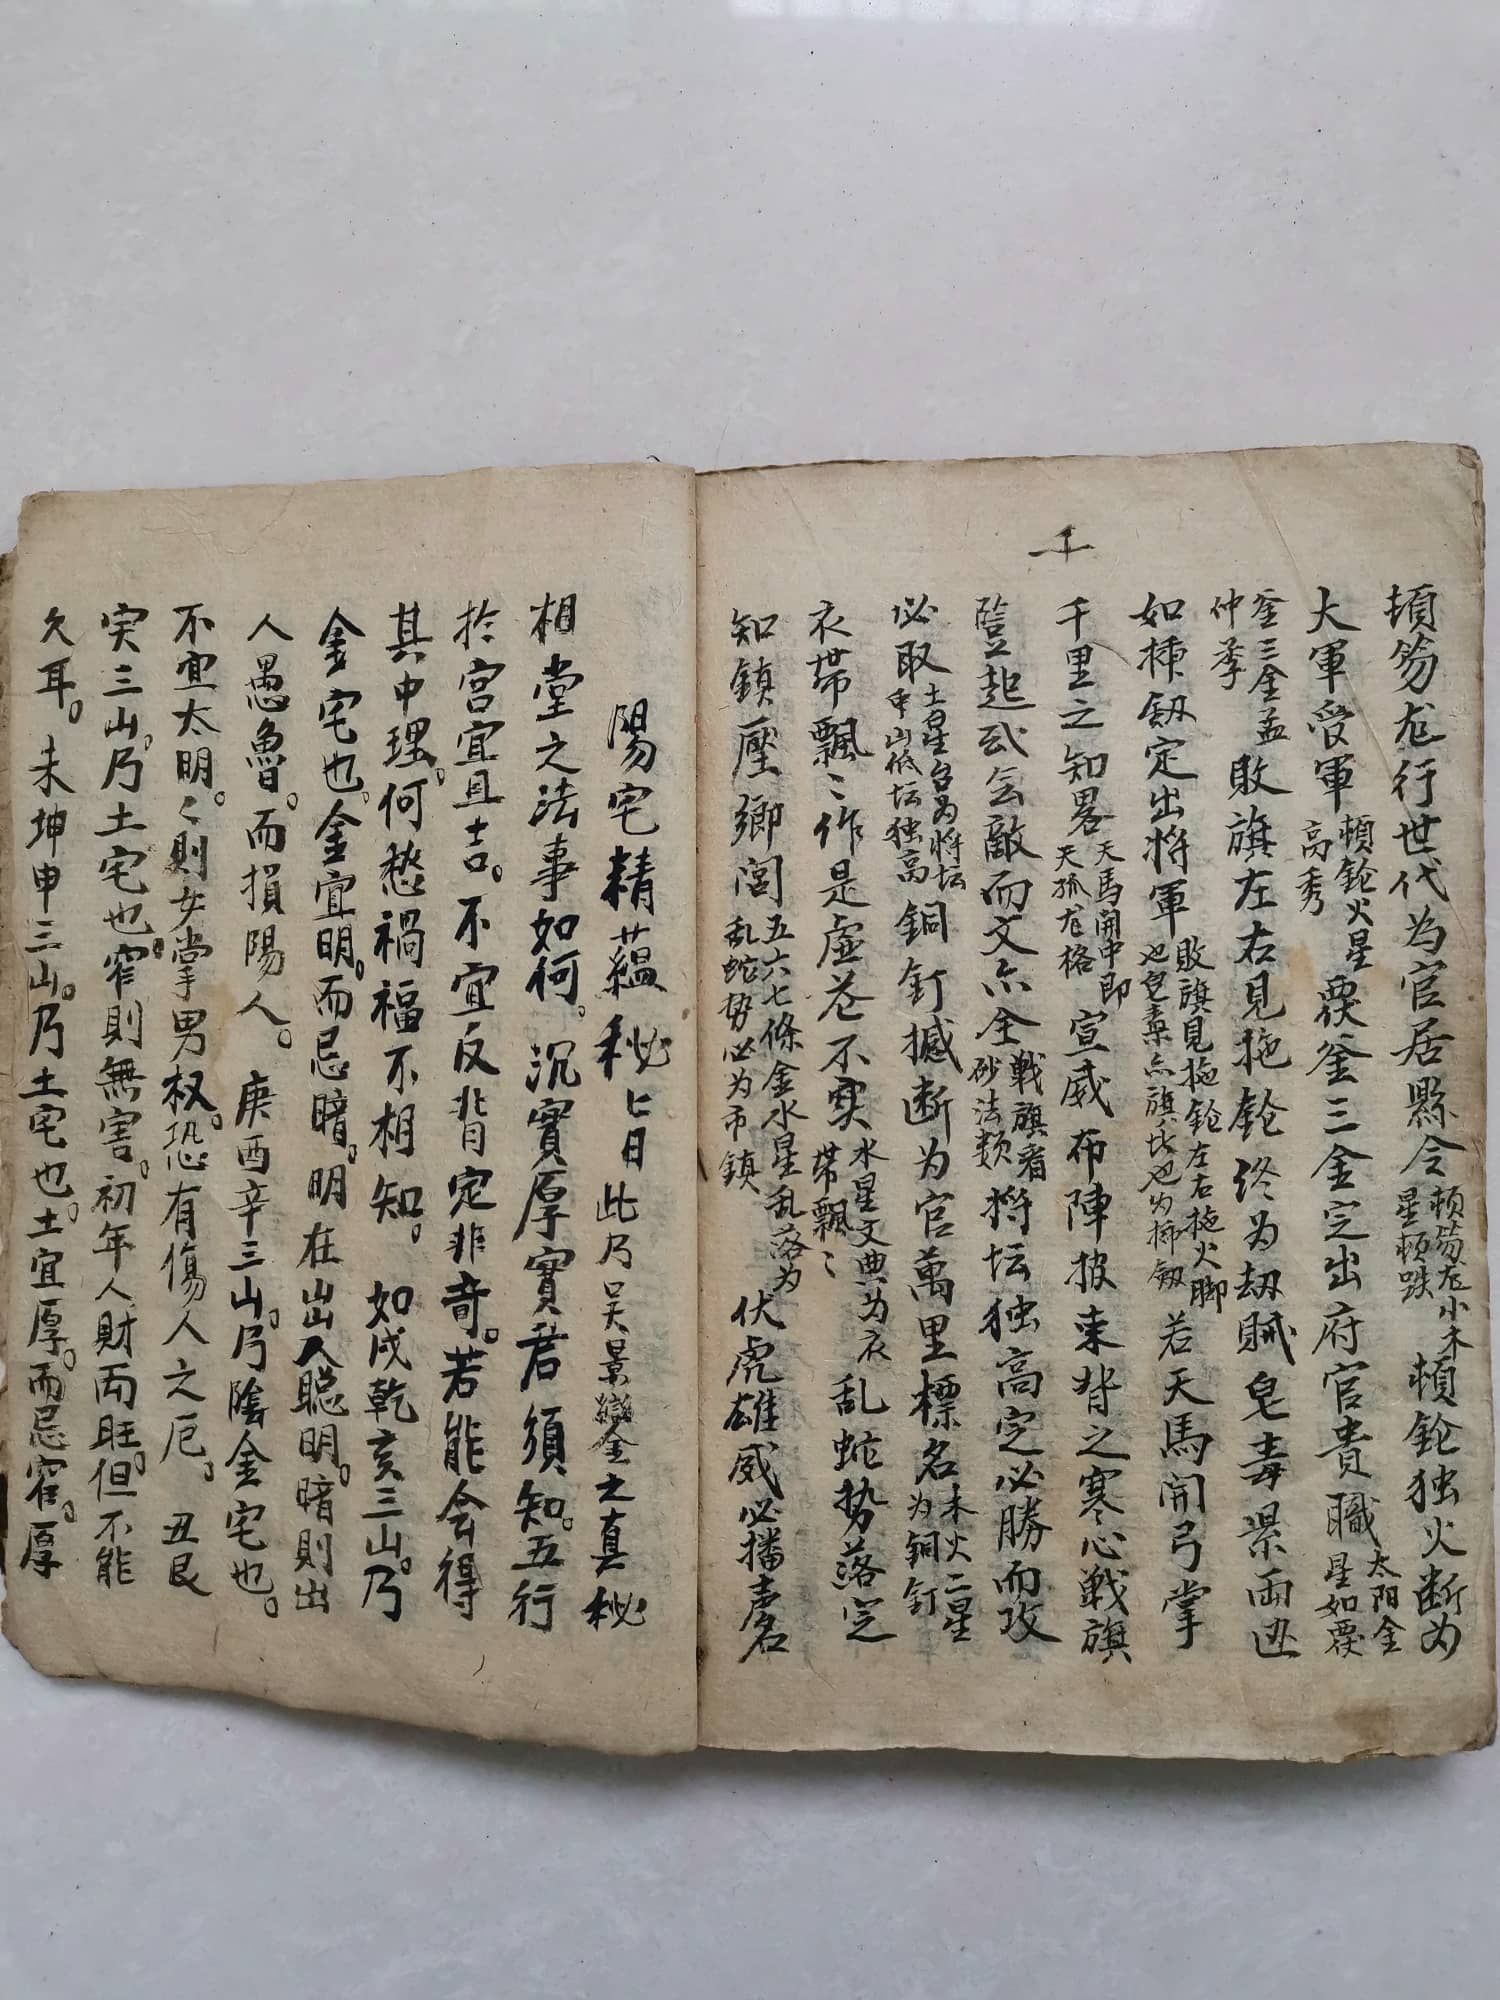 頓笏龙行世代为官居縣令頓笏龙小木星頓跌頓鎗独火断为
大軍受軍頓鎗火星高秀覆釜三金定出府官貴職太阳金星如覆
釜三金孟仲季敗旗左右見拖鎗终为劫賊皂毒梁雨迅
如揷劔定出将軍敗旗見拖鎗左右拖火脚也皂毒点旗氐也为揷劔若天馬開弓掌
千里之知畧天馬開中即天孤龙格宣威布陣披束背之寒心戦旗
豎起武会敵而文亦全戦旗看砂法類将坛独高定必勝而攻
必取土星台为将坛中山低坛独高銅釘撼断为官萬里標名木火二星为銅釘
衣帶飄〻作是虚花不実水星文典为衣帶飄〻乱蛇势落定
知鎮壓鄉閭五六七條金水星乱落为乱蛇势必为币鎮伏虎雄威必播声名
陽宅精蘊秘七日此乃吴景鸞金之真秘
相堂之法事如何。沉實厚實君須知。五行
於宫宜且吉。不宜反背定非奇。若能会得
其中理。何愁禍福不相知。如戌乾亥三山。乃
金宅也。金宜明。而忌暗。明在出入聪明。暗則出
人愚魯。而損陽人。庚酉辛三山。乃陰金宅也。
不宜太明。〻則女掌男权。恐有傷人之厄。丑艮
寅三山。乃土宅也。窄則無害。初年人財两旺。但不能
久耳。未坤申三山。乃土宅也。土宜厚。而忌窄。厚